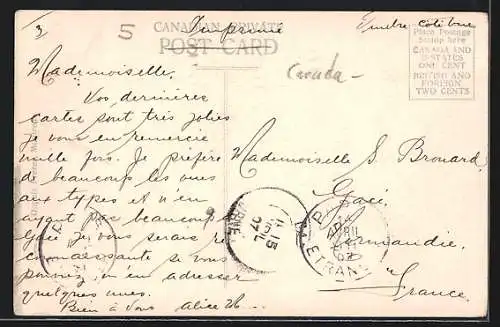 3
5
CANADIAN PRIVATE
POST CARD
Imprimé
Timbre côté vue
Place Postage
Stamp here
CANADA AND
U-STATES
ONE CENT
BRITISH AND
FOREIGN
TWO CENTS
Canada -
Mademoiselle,
Vos dernières
cartes sont très jolies
je vous en remercie
mille fois. Je préfère
de beaucoup les vues
aux types et n'en
ayant pas beaucoup de
Gacé je vous serais re
connaissante si vous
pouviez m'en adresser
quelques unes.
Bien à vous Alice
Mademoiselle S. Brouard,
Gacé,
Normandie,
France.
15
07
ETRANG